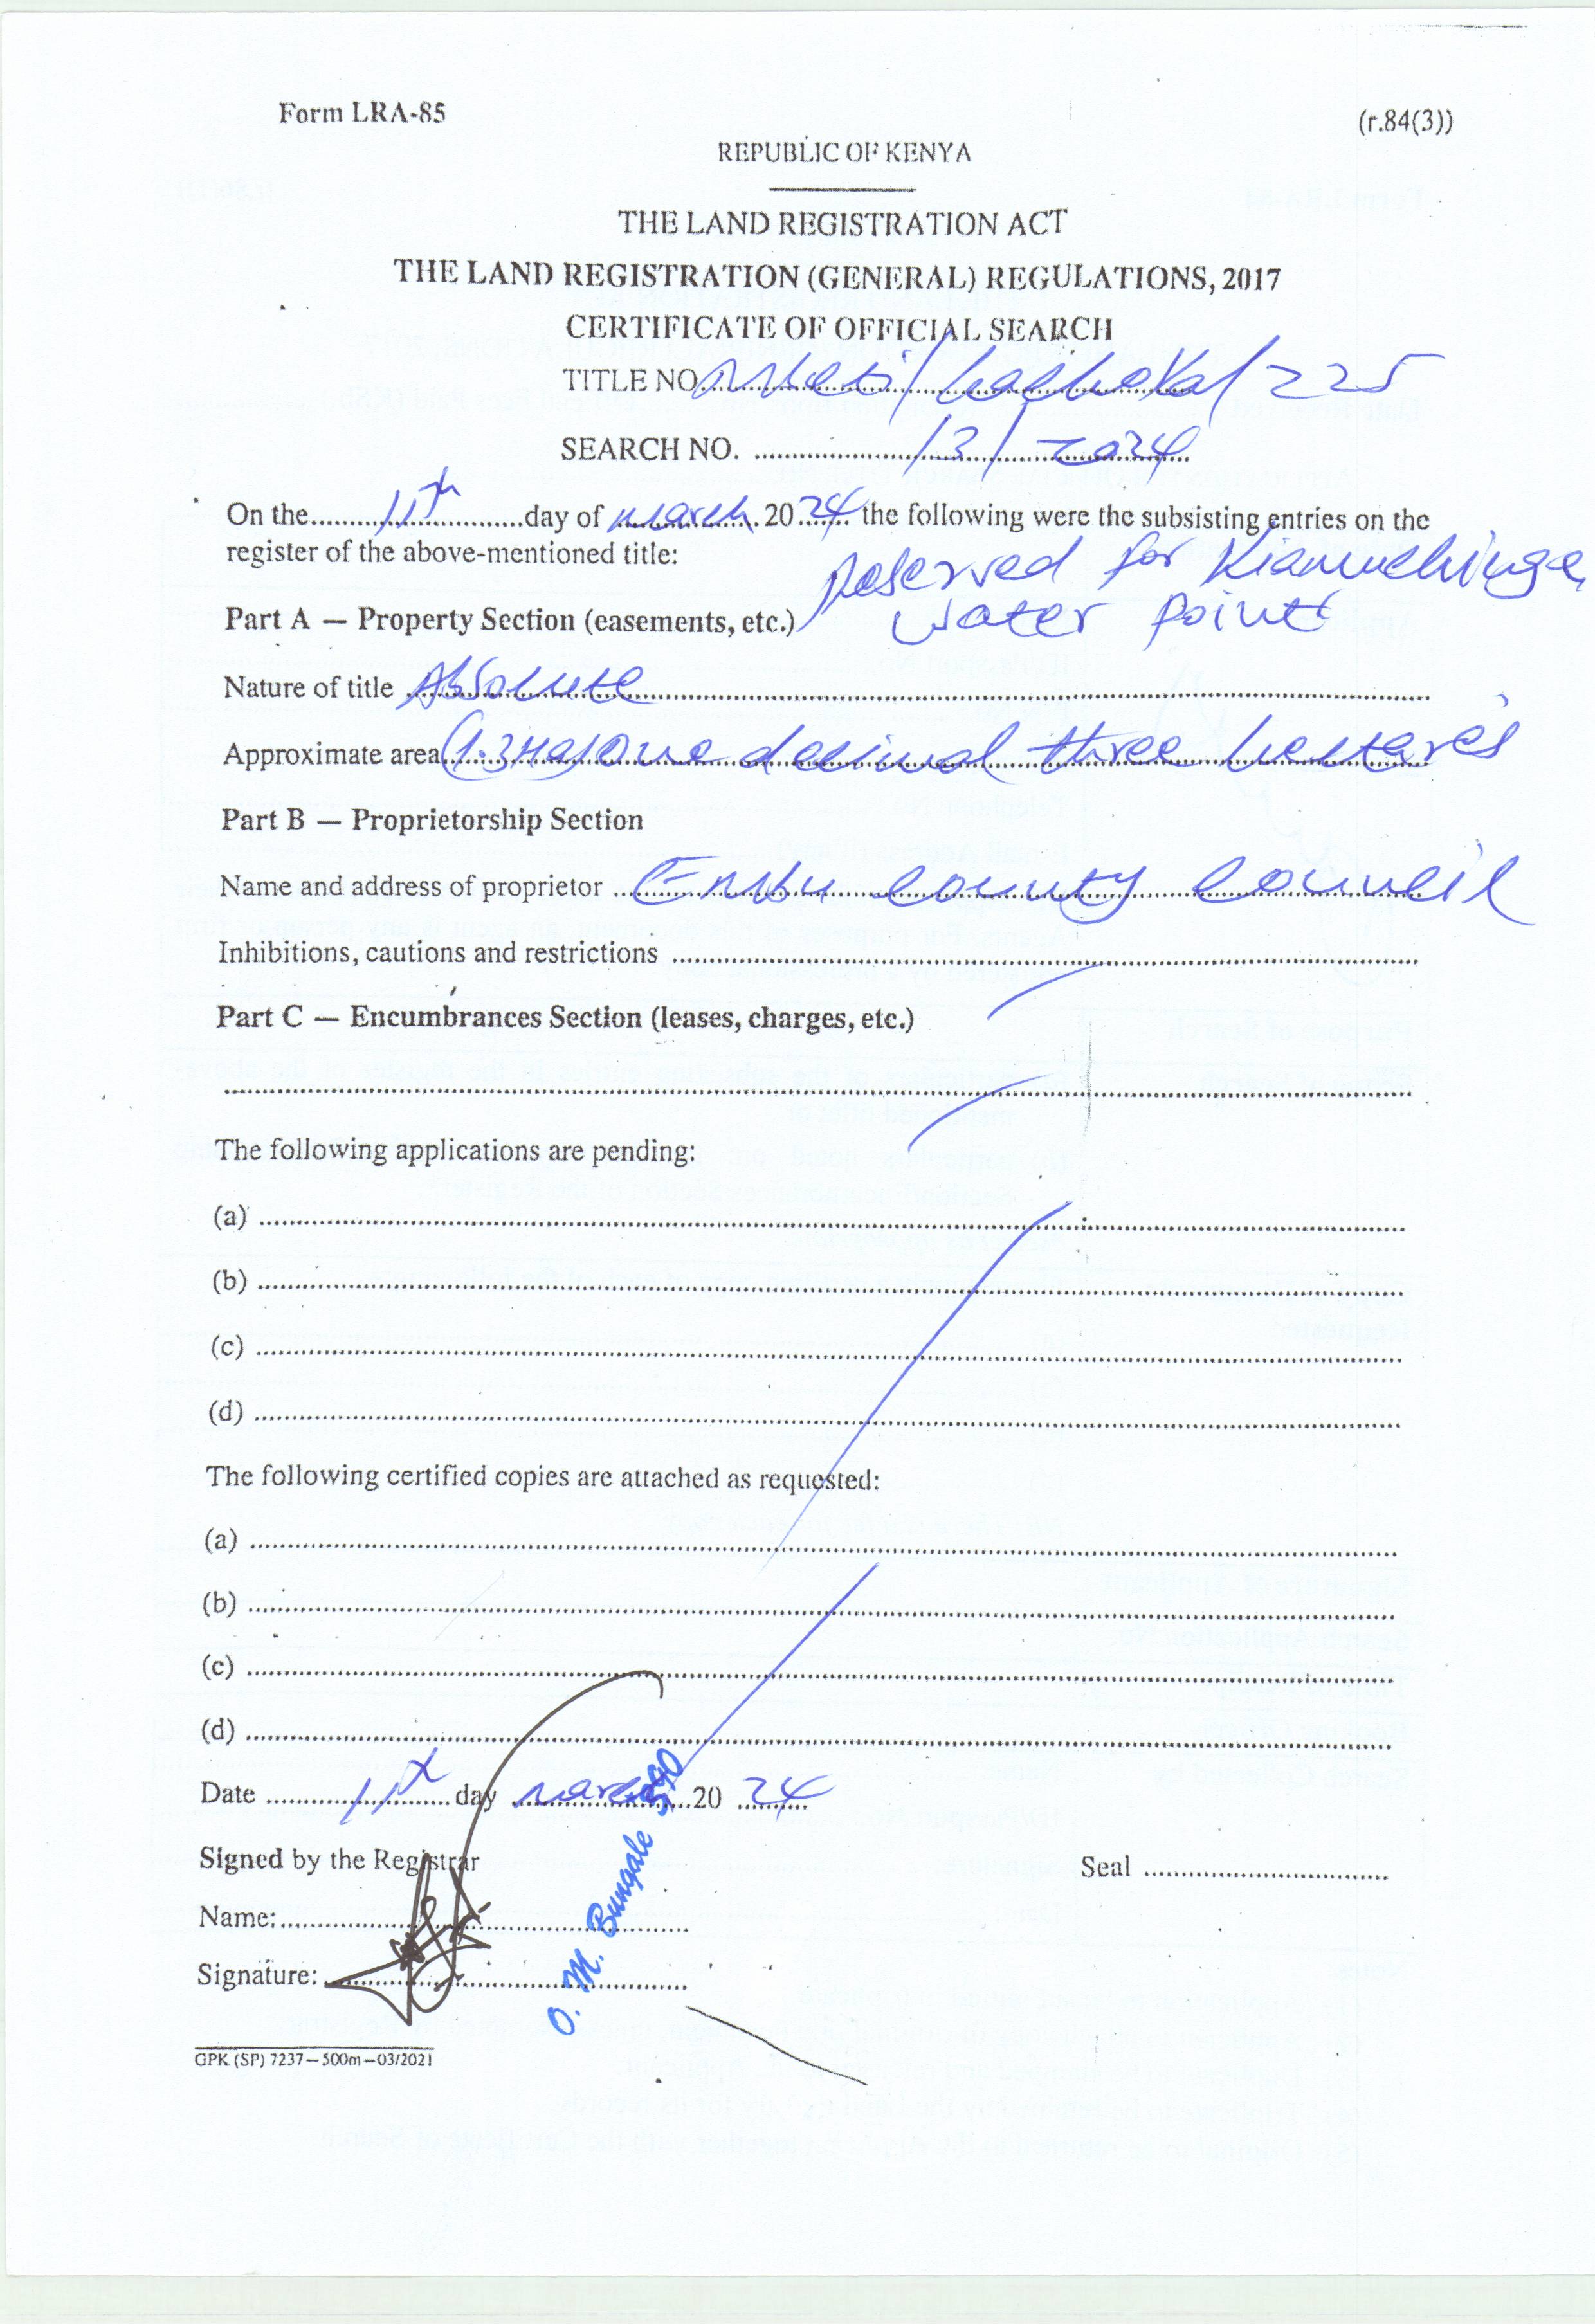 Form LRA-85
(r.84(3))
REPUBLIC OF KENYA
THE LAND REGISTRATION ACT
THE LAND REGISTRATION (GENERAL) REGULATIONS, 2017
CERTIFICATE OF OFFICIAL SEARCH
TITLE NO. / / 225
SEARCH NO. ........ /3/ 2024
On the........11th........day of march 20 24 the following were the subsisting entries on the
register of the above-mentioned title:
Reserved for Kiamuchinga
Part A — Property Section (easements, etc.) Water point
Nature of title Absolute
Approximate area (1.3Ha) One decimal three hectares
Part B — Proprietorship Section
Name and address of proprietor Embu County Council
Inhibitions, cautions and restrictions ........
Part C — Encumbrances Section (leases, charges, etc.)
The following applications are pending:
(a) ........
(b) ........
(c) ........
(d) ........
The following certified copies are attached as requested:
(a) ........
(b) ........
(c) ........
(d) ........
Date 11th day march 20 24
Signed by the Registrar
Seal ........
Name: ........
O. M. Bungale 590
Signature: ........
GPK (SP) 7237—500m—03/2021